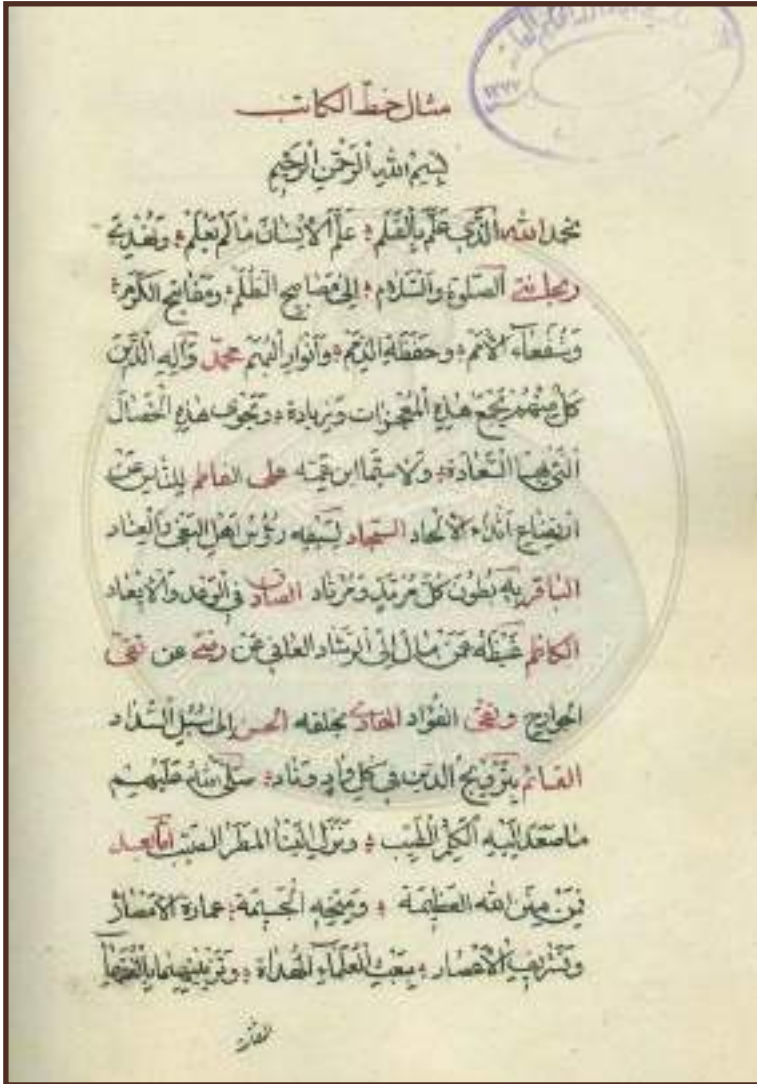 مثال خط الكاتب
بسم الله الرحمن الرحيم
نحمد الله الذي علّم بالقلم علّم الانسان ما لم يعلم
الصلوة والسلام الى مصابيح الظلم ومفاتيح الكرم
وشفعاء الامم وحفظة الذمم وانوار البهم محمد وآله الذين
كل منهم يجمع هذه المعجزات وزيادة ويحوى هذه الخصال
التي بها السعادة ولا سيما ابن عمه على الفاطم للناس عن
الالحاد السجاد لسيفه رؤس اهل البغى والعناد
الباقر به بطون كل مرتد ومرتاد الصادق في الوعد والايعاد
الكاظم غيظه عمن مال الى الرشاد العافي عمن رضى عن تقى
الجوارح ونقى الفؤاد الهادى بخلقه الحسن الى سبل السداد
القائم بترويج الدين في كل واد وناد صلى الله عليهم
ما صعد اليه الكلم الطيب ونزل الينا المطر الصيب اما بعد
فمن منن الله العظيمة ومنحه الجسيمة عمارة الامصار
وتشريف الاعصار ببعث العلماء الهداة وتزيينهما بالفقهاء
الثقات
١٢٧٢